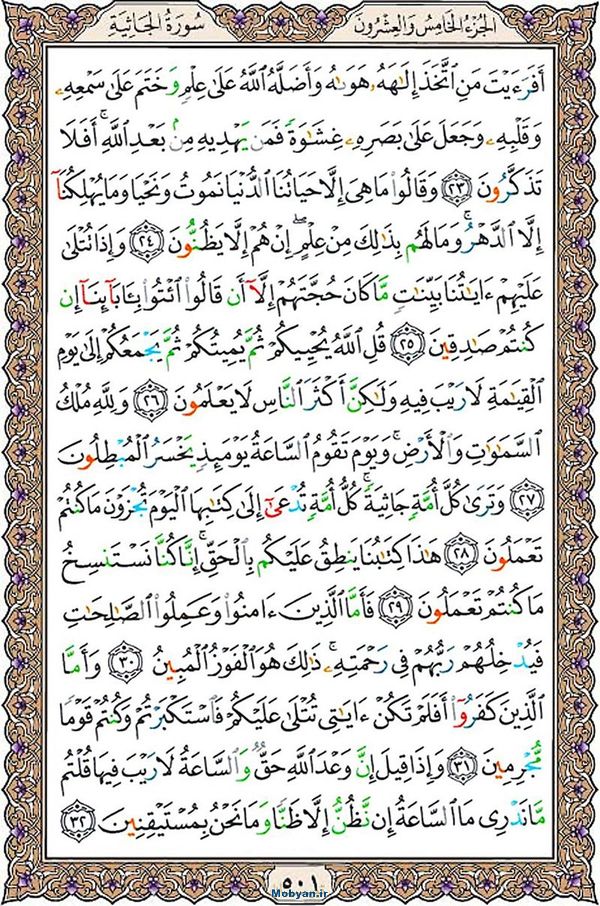 الجزء الخامس والعشرون
سورة الجاثية
أَفَرَءَيْتَ مَنِ ٱتَّخَذَ إِلَٰهَهُۥ هَوَىٰهُ وَأَضَلَّهُ ٱللَّهُ عَلَىٰ عِلْمٍ وَخَتَمَ عَلَىٰ سَمْعِهِۦ
وَقَلْبِهِۦ وَجَعَلَ عَلَىٰ بَصَرِهِۦ غِشَٰوَةً فَمَن يَهْدِيهِ مِنۢ بَعْدِ ٱللَّهِ ۚ أَفَلَا
تَذَكَّرُونَ ﴿٢٣﴾ وَقَالُوا۟ مَا هِىَ إِلَّا حَيَاتُنَا ٱلدُّنْيَا نَمُوتُ وَنَحْيَا وَمَا يُهْلِكُنَآ
إِلَّا ٱلدَّهْرُ ۚ وَمَا لَهُم بِذَٰلِكَ مِنْ عِلْمٍ ۖ إِنْ هُمْ إِلَّا يَظُنُّونَ ﴿٢٤﴾ وَإِذَا تُتْلَىٰ
عَلَيْهِمْ ءَايَٰتُنَا بَيِّنَٰتٍ مَّا كَانَ حُجَّتَهُمْ إِلَّآ أَن قَالُوا۟ ٱئْتُوا۟ بِـَٔابَآئِنَآ إِن
كُنتُمْ صَٰدِقِينَ ﴿٢٥﴾ قُلِ ٱللَّهُ يُحْيِيكُمْ ثُمَّ يُمِيتُكُمْ ثُمَّ يَجْمَعُكُمْ إِلَىٰ يَوْمِ
ٱلْقِيَٰمَةِ لَا رَيْبَ فِيهِ وَلَٰكِنَّ أَكْثَرَ ٱلنَّاسِ لَا يَعْلَمُونَ ﴿٢٦﴾ وَلِلَّهِ مُلْكُ
ٱلسَّمَٰوَٰتِ وَٱلْأَرْضِ ۚ وَيَوْمَ تَقُومُ ٱلسَّاعَةُ يَوْمَئِذٍ يَخْسَرُ ٱلْمُبْطِلُونَ
﴿٢٧﴾ وَتَرَىٰ كُلَّ أُمَّةٍ جَاثِيَةً ۚ كُلُّ أُمَّةٍ تُدْعَىٰٓ إِلَىٰ كِتَٰبِهَا ٱلْيَوْمَ تُجْزَوْنَ مَا كُنتُمْ
تَعْمَلُونَ ﴿٢٨﴾ هَٰذَا كِتَٰبُنَا يَنطِقُ عَلَيْكُم بِٱلْحَقِّ ۚ إِنَّا كُنَّا نَسْتَنسِخُ
مَا كُنتُمْ تَعْمَلُونَ ﴿٢٩﴾ فَأَمَّا ٱلَّذِينَ ءَامَنُوا۟ وَعَمِلُوا۟ ٱلصَّٰلِحَٰتِ
فَيُدْخِلُهُمْ رَبُّهُمْ فِى رَحْمَتِهِۦ ۚ ذَٰلِكَ هُوَ ٱلْفَوْزُ ٱلْمُبِينُ ﴿٣٠﴾ وَأَمَّا
ٱلَّذِينَ كَفَرُوٓا۟ أَفَلَمْ تَكُنْ ءَايَٰتِى تُتْلَىٰ عَلَيْكُمْ فَٱسْتَكْبَرْتُمْ وَكُنتُمْ قَوْمًا
مُّجْرِمِينَ ﴿٣١﴾ وَإِذَا قِيلَ إِنَّ وَعْدَ ٱللَّهِ حَقٌّ وَٱلسَّاعَةُ لَا رَيْبَ فِيهَا قُلْتُم
مَّا نَدْرِى مَا ٱلسَّاعَةُ إِن نَّظُنُّ إِلَّا ظَنًّا وَمَا نَحْنُ بِمُسْتَيْقِنِينَ ﴿٣٢﴾
٥٠١
Mobyan.ir